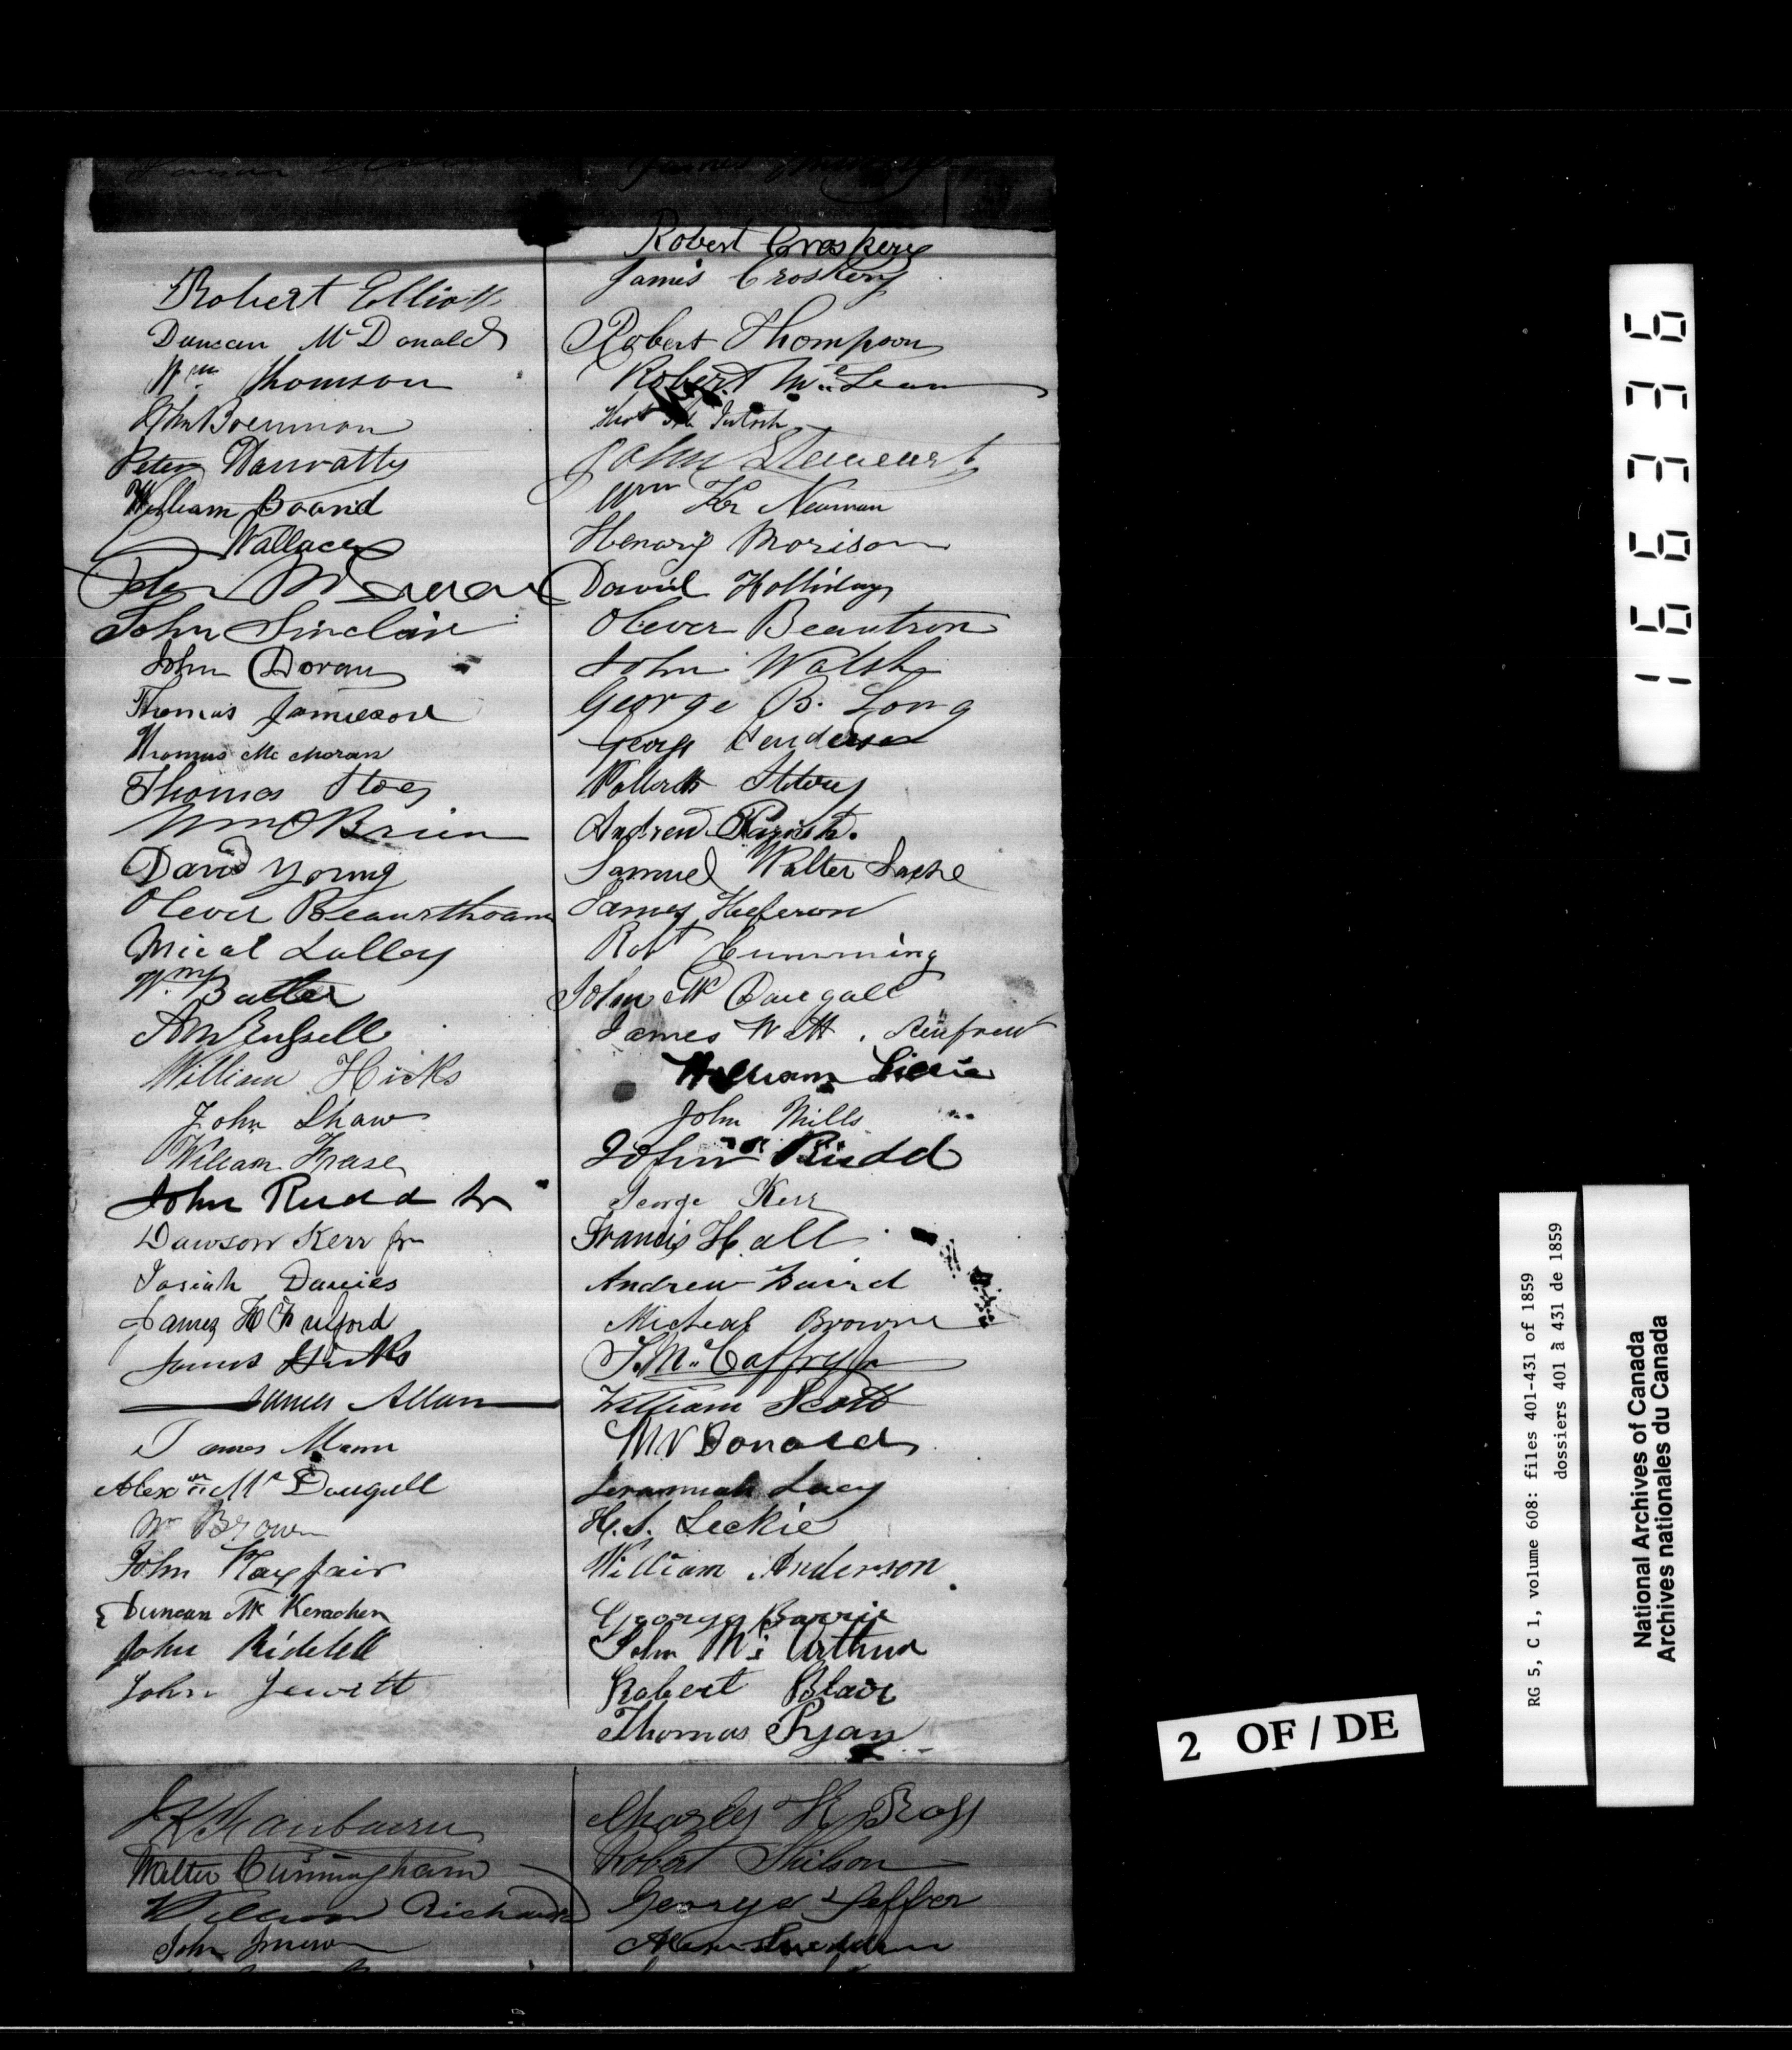 Robert Elliott
Duncan McDonald
Wm Thomson
John Brennan
Peter
William Baird
Wallace
Peter
John Sinclair
John Doran
Thomas Jamieson
Thomas McMoran
Thomas
Wm O Brien
David Young
Olever
Micel Lalley
Wm Butler
William Hicks
John Shaw
William Frase
John Rudd Sr
Dawson Kerr Jr
Josiah Davies
James H Fulford
James Hicks
James Allan
James Mann
Alexn Mc Dougall
Wm Brown
John Playfair
Duncan McKerracher
John Riddell
John Jewitt
Robert Croskery
James Croskery
Robert Thompson
Robert McLean
McIntosh
John Stewart
Wm Newman
Henary Morison
David Holliday
Olever Beautron
John Walsh
George B. Long
George Henderson
Andrew Parish.
Samuel Walter
James Heferon
Robt Cumming
John McDougall
James Watt, Renfrew
William Lillie
John Mills
John Rudd
George Kerr
Francis Hall
Andrew Baird
Micheal Browne
T. McCaffry Jr
William Scott
McDonald
Jeramiah Lacy
H. S. Leckie
William Anderson
George Barrie
John McArthur
Robert Blair
Thomas Ryan
Walter Cunningham
William Richards
John
Charles H Ross
Robert
George
2 OF / DE
166336
RG 5, C 1, volume 608: files 401-431 of 1859
dossiers 401 à 431 de 1859
National Archives of Canada
Archives nationales du Canada